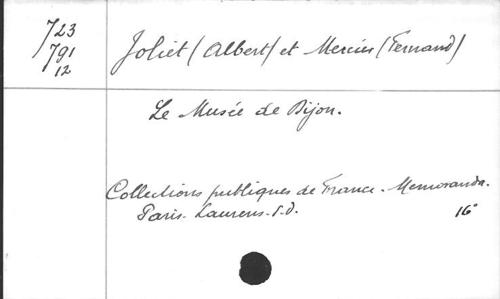 723
791
12
Joliet (Albert) et Mercier (Fernand)
Le Musée de Dijon.
Collections publiques de France. Memoranda.
Paris. Laurens. s.d. 16°